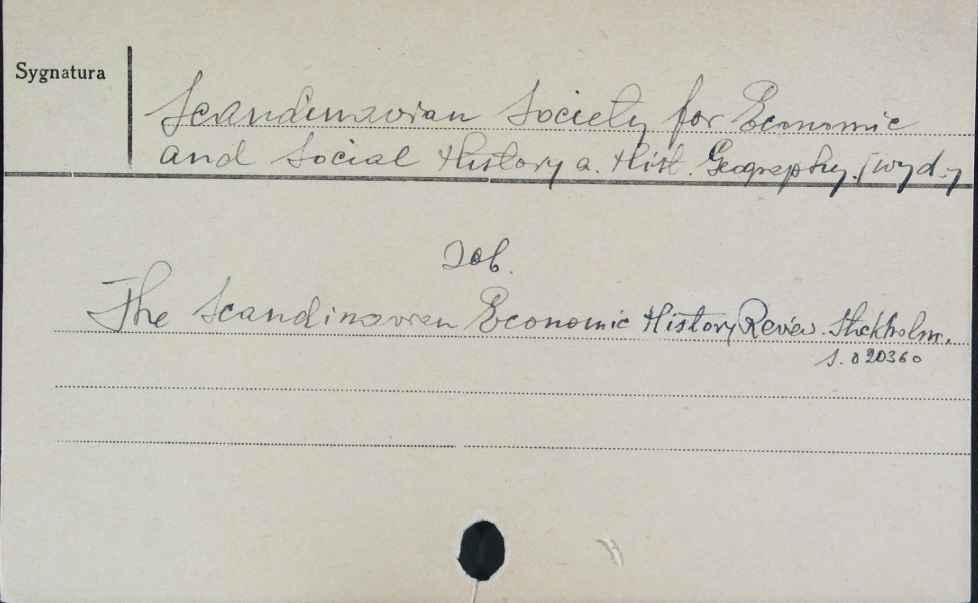 Sygnatura
Scandinavian Society for Economic
and Social History a. Hist. Geography. [wyd.]
Zob.
The Scandinavian Economic History Review. Stockholm.
S. 020360